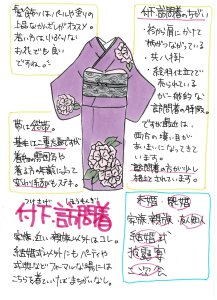 髪飾りはパールや金の
上品なかんざしがオススメ。
若い方は小ぶりな
お花でも良い
ですね。
帯は袋帯。
基本は二重太鼓ですが
着物の雰囲気や
着る方の年齢によって
変わり結びもステキ。
付下・訪問着のちがい
・衿から肩にかけて
柄がつながっている
共八掛
・絵羽仕立てで
売られている
が一般的な
訪問着の特徴。
ですが最近は、
両方の境い目が
あいまいになってきて
います。
訪問着の方がより少し
格上とされています。
つけさげ ほうもんぎ
付下・訪問着
家族、近い親族以外はコレ。
結婚式以外にもパーティや
式典などフォーマルな場には
こちらを着ていけばまちがいなし。
未婚・既婚
家族・親族・友人
結婚式
披露宴
二次会